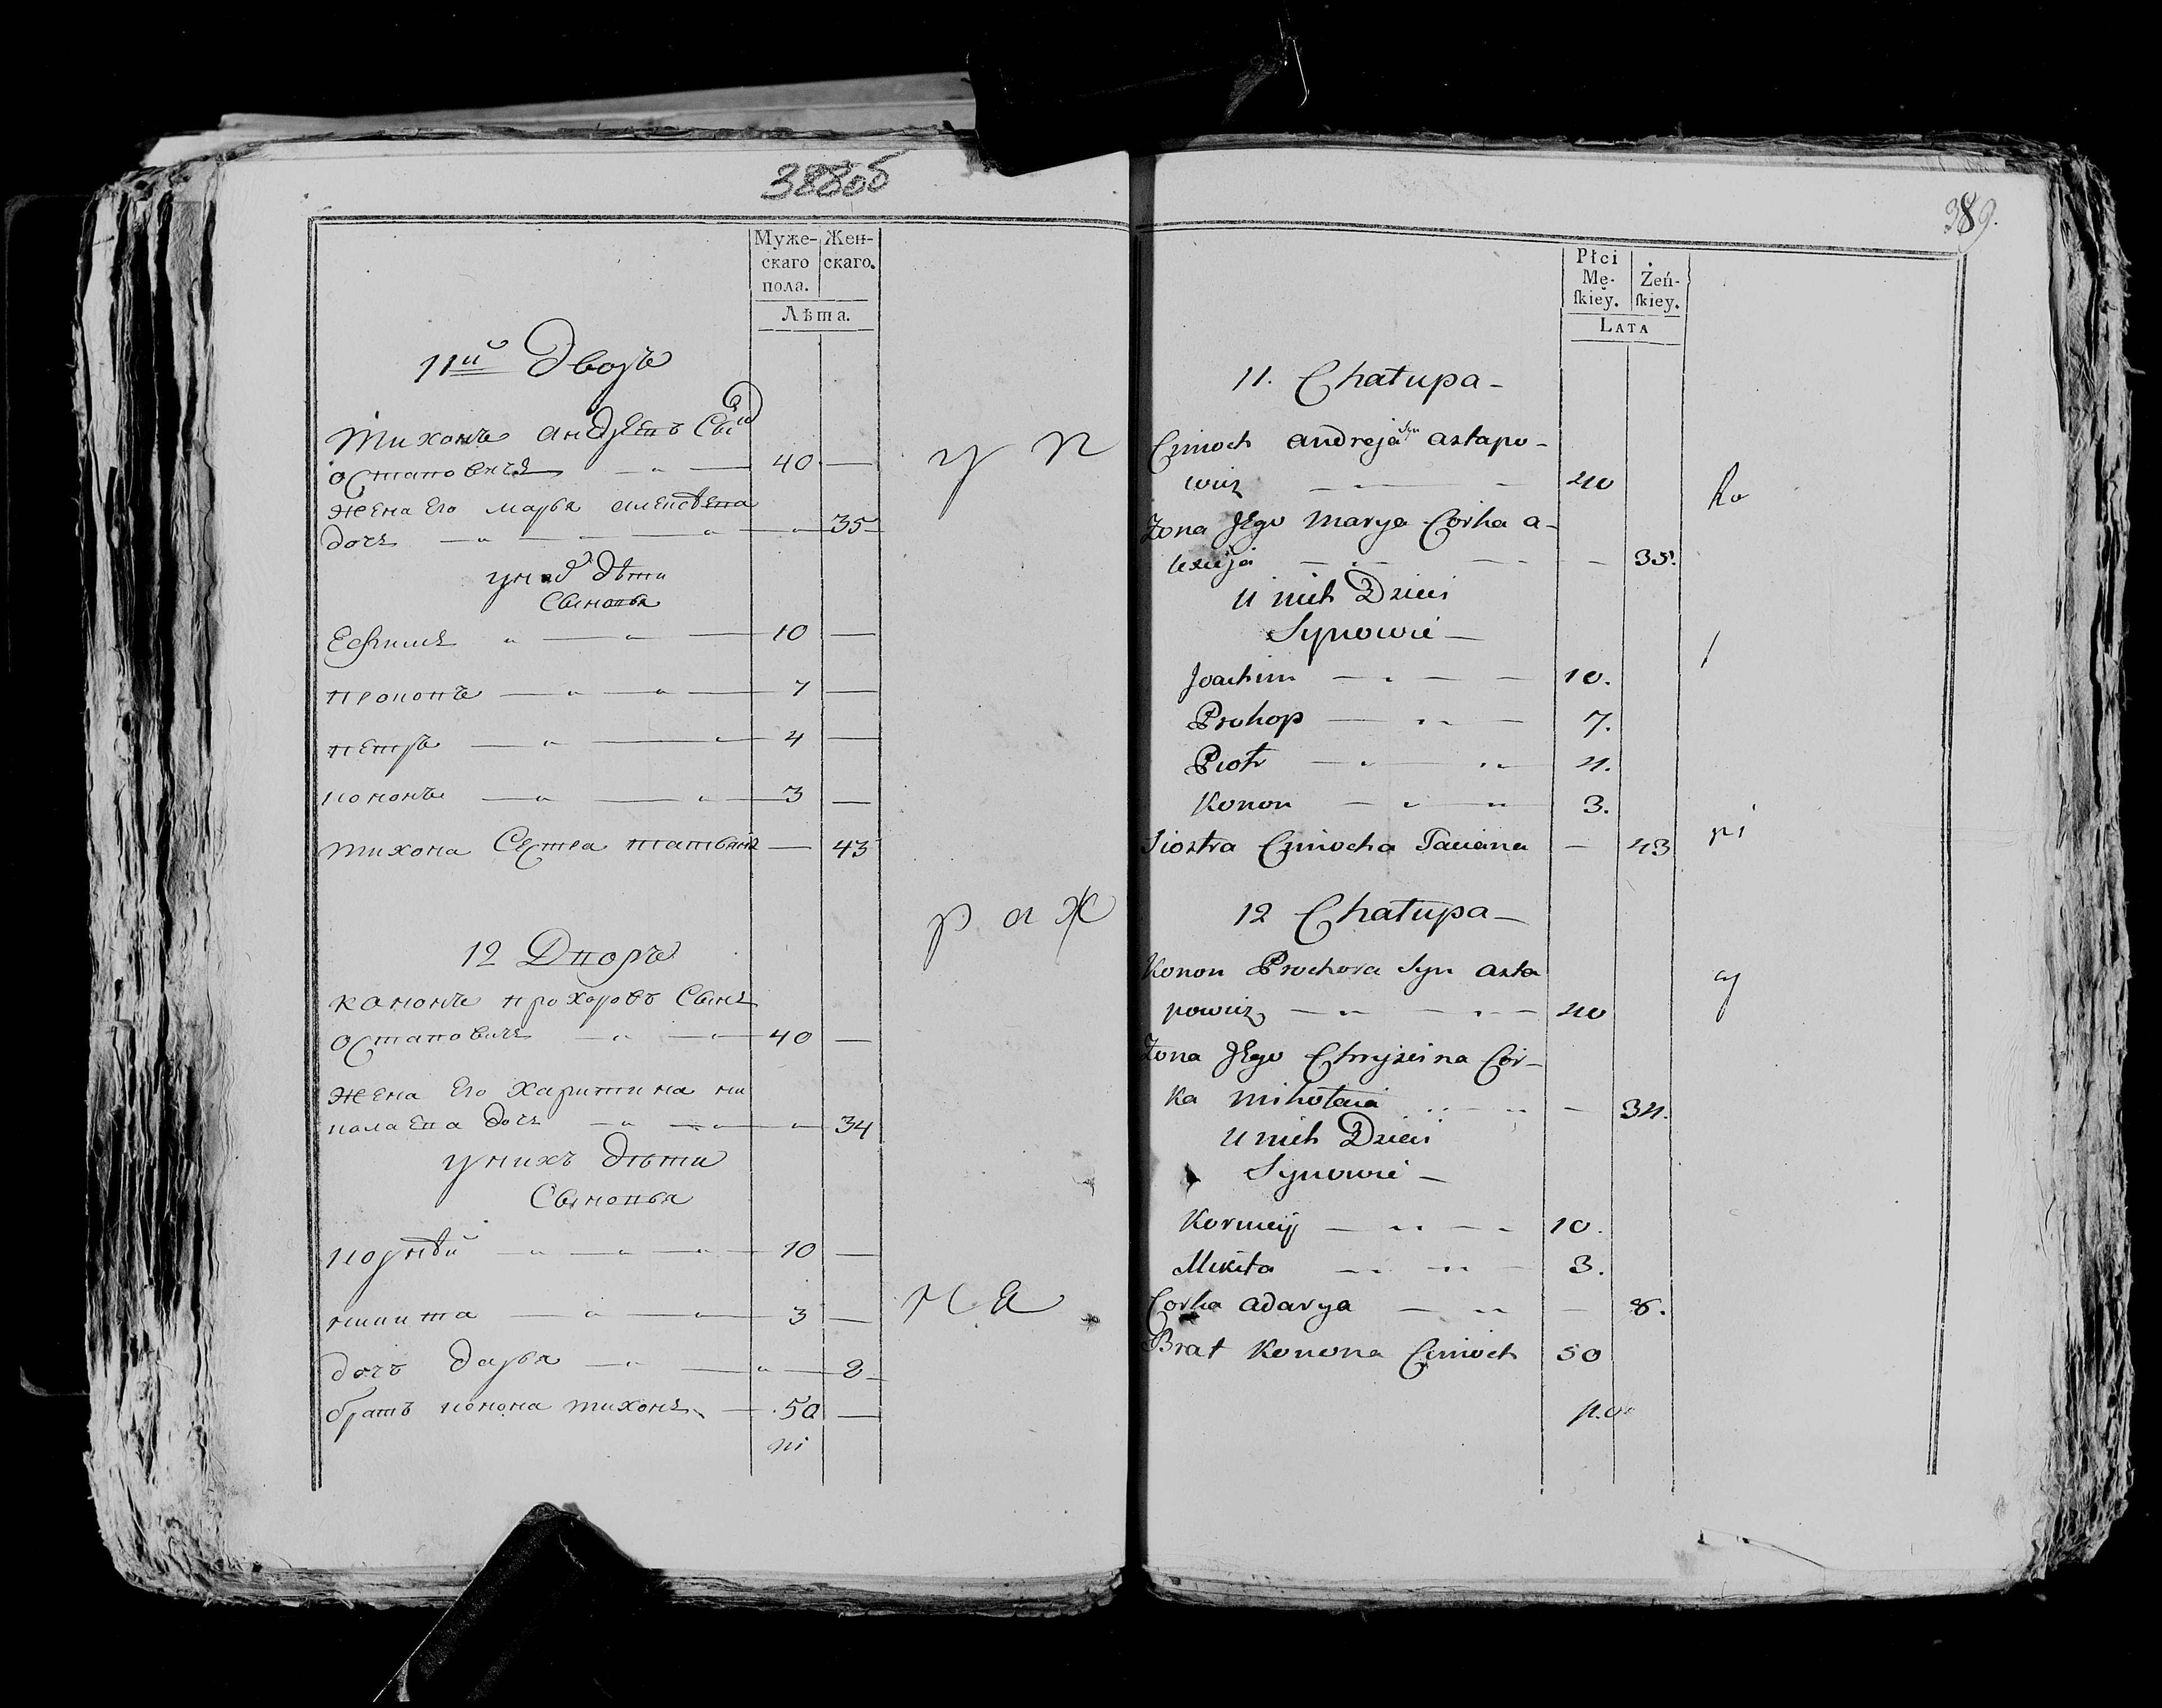 388об
Муже-
скаго
пола.
Жен-
скаго.
Лѣта.
11й Дворъ
Тихонъ Андреевъ Сынъ
Остановичъ 40
жена Его марья алексѣева
дочь 35
у них дѣти
Сыновья
Ефимъ 10
прокопъ 7
петръ 4
кононъ 3
тихона Сестра татьяна 43
12 Дворъ
кононъ прохоровъ Сынъ
Остаповичъ 40
жена Его харитина ни
колаева дочь 34
у нихъ дѣти
Сыновья
корнѣй 10
никита 3
дочь дарья 8
братъ конона тихонъ 50
у п
р а ж
к а
389.
Płci
Mę-
ſkiey.
Żeń-
ſkiey.
LATA
11. Chałupa
Cimoch andreja Syn astapo-
wicz 40
Żona Jego Marya Corka a-
lexieja 35.
U nich Dzieci
Synowie
Joachim 10.
Prokop 7.
Piotr 4.
Konon 3.
Siostra Cimocha Taciana 43
12 Chałupa
Konon Prochora Syn asta
powicz 40
Żona Jego Chryscina Cór-
ka mikołaia 34.
U nich Dzieci
Synowie
Korniey 10.
Mikita 3.
Corka adarya 8.
Brat Konona Cimoch 50